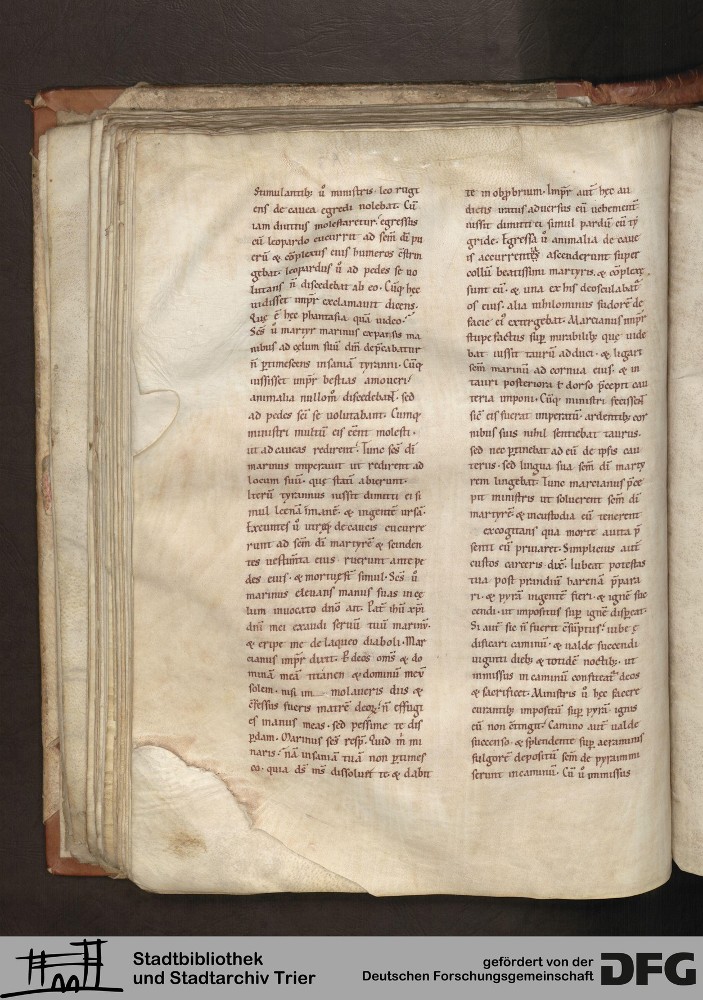 Stimulantibꝫ ů ministris. leo rugi
ens de cauea egredi nolebat. Cū
iam diutius molestaretur. egressus
cū leopardo cucurrit ad scm̄ dī pu
erū & cōplexus eius humeros cstrin
gebat. leopardus ů ad pedes se uo
lutans n̄ discedebat ab eo. Cūq; hęc
uidisset impr̄ exclamauit dicens.
Quę ē hęc phantasia quā uideo?
Scs̄ ů martyr marinus expansis ma
nibus ad cęlum suū dm̄ dep̄cabatur
n̄ ꝑtimescens insaniā tyranni. Cūq;
iussisset impr̄ bestias amoueri
animalia nullom̄ discedebāt. sed
ad pedes scī se uolutabant. Cumq;
ministri multū eis eēnt molesti.
ut ad caueas redirent. Tunc scs̄ dī
marinus imperauit ut redirent ad
locum suū. quę statī abierunt.
Iterū tyrannus iussit dimitti ei si
mul leenā īmanē. & ingentē ursā.
Exeuntes ů utrqꝫ de caueis cucurre
runt ad scm̄ dī martyrē & scinden
tes uestimta eius ruerunt ante pe
des eius. & mortuę st̄ simul. Scs̄ ů
marinus eleuans manus suas in cę
lum inuocato dn̄o ait. Pat̄ ihū xpī
dn̄i mei exaudi seruū tuū marinū.
& eripe me de laqueo diaboli. Mar
cianus impr̄ dixit. P deos oms̄ & do
minā meā titanen & dominū meū
solem. nisi im molaueris diis &
cfessus fueris matrē deoꝝ n̄ effugi
es manus meas. sed pessime te dis
ꝑdam. Marinus scs̄ resp̄. Quid m̄ mi
naris? nā insaniā tuā non ꝑtimes
co. quia ds̄ ms̄ dissoluet te & dabit
te in obꝓbrium. Impr̄ aut̄ hęc au
diens iratus aduersus eū uehement̄
iussit dimitti ei simul pardū cū ty
gride. Egressa ů animalia de caue
is accurrentes ascenderunt super
collū beatissimi martyris. & cōplexę
sunt eū. & una ex his deosculabat̄
os eius. alia nihilominus sudorē de
facie ei᾽ extergebat. Marcianus impr̄
stupefactus suꝑ mirabilibꝫ quę uide
bat iussit taurū adduci. & ligari
scm̄ marinū ad cornua eius. & in
tauri posteriora & dorso p̄cepit cau
teria imponi. Cūq; ministri fecissent
sic̄ eis fuerat imperatū. ardentibꝫ cor
nibus suis nihil sentiebat taurus.
sed nec ꝑtinebat ad eū de ipsis cau
teriis. sed lingua sua scm̄ dī marty
rem lingebat. Tunc marcianus p̄ce
pit ministris ut soluerent scm̄ dī
martyrē & in custodia eū tenerent
excogitans qua morte a uita p̄
senti eū priuaret. Simplicius aut̄
custos carceris dix̄. Iubeat potestas
tua post prandiū harenā p̄para
ri. & pyrā ingentē fieri. & ignē suc
cendi. ut impositus suꝑ ignē disꝑeat.
Si aut̄ sic n̄ fuerit csūptus. iube ę
dificari caminū. & ualde succendi
uiginti diebꝫ & totidē noctibꝫ. ut
inmissus in caminū confiteat̄ deos
& sacrificet. Ministris ů hęc facere
curantibꝫ impositū suꝑ pyrā ignis
eū non ctingit. Camino aut̄ ualde
succenso. & splendente suꝑ aeraminis
fulgorē depositū scm̄ de pyra inmi
serunt in caminū. Cū ů inmissus
Stadtbibliothek
und Stadtarchiv Trier
gefördert von der
Deutschen Forschungsgemeinschaft
DFG